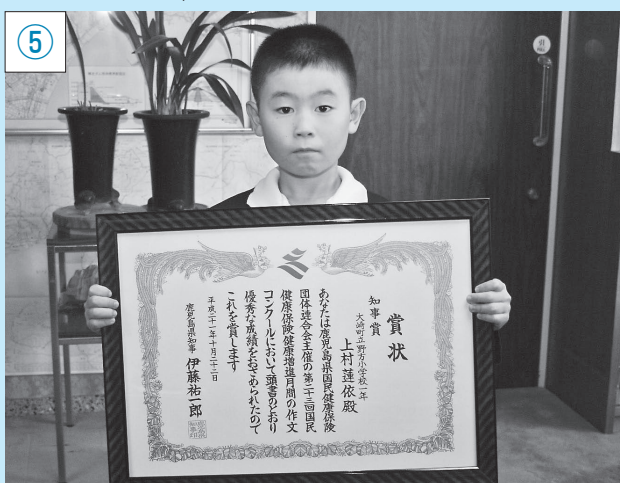 ⑤
賞状
知事賞
大崎町立野方小学校一年
上村蓮依殿
あなたは鹿児島県国民健康保険
団体連合会主催の第二十三回国民
健康保険健康増進月間の作文
コンクールにおいて頭書のとおり
優秀な成績をおさめられたので
これを賞します
平成二十一年十月二十二日
鹿児島県知事 伊藤祐一郎
引